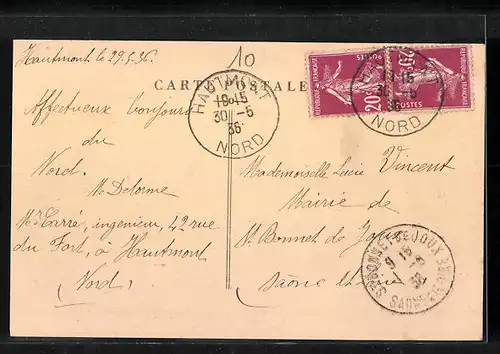 Hautmont le 29.5.36.
10
CARTE POSTALE
HAUTMONT
18·15
30-5
36
NORD
RÉPUBLIQUE FRANÇAISE
POSTES
20c
RÉPUBLIQUE FRANÇAISE
POSTES
20c
NORD
Affectueux bonjours
du
Nord.
M. Delorme
Mr Carré, ingenieur, 42 rue
du Fort, à Hautmont
(Nord)
Mademoiselle Lucie Vincent
Mairie de
St Bonnet de Joux
Saône et Loire
ST BONNET-DE-JOUX
36